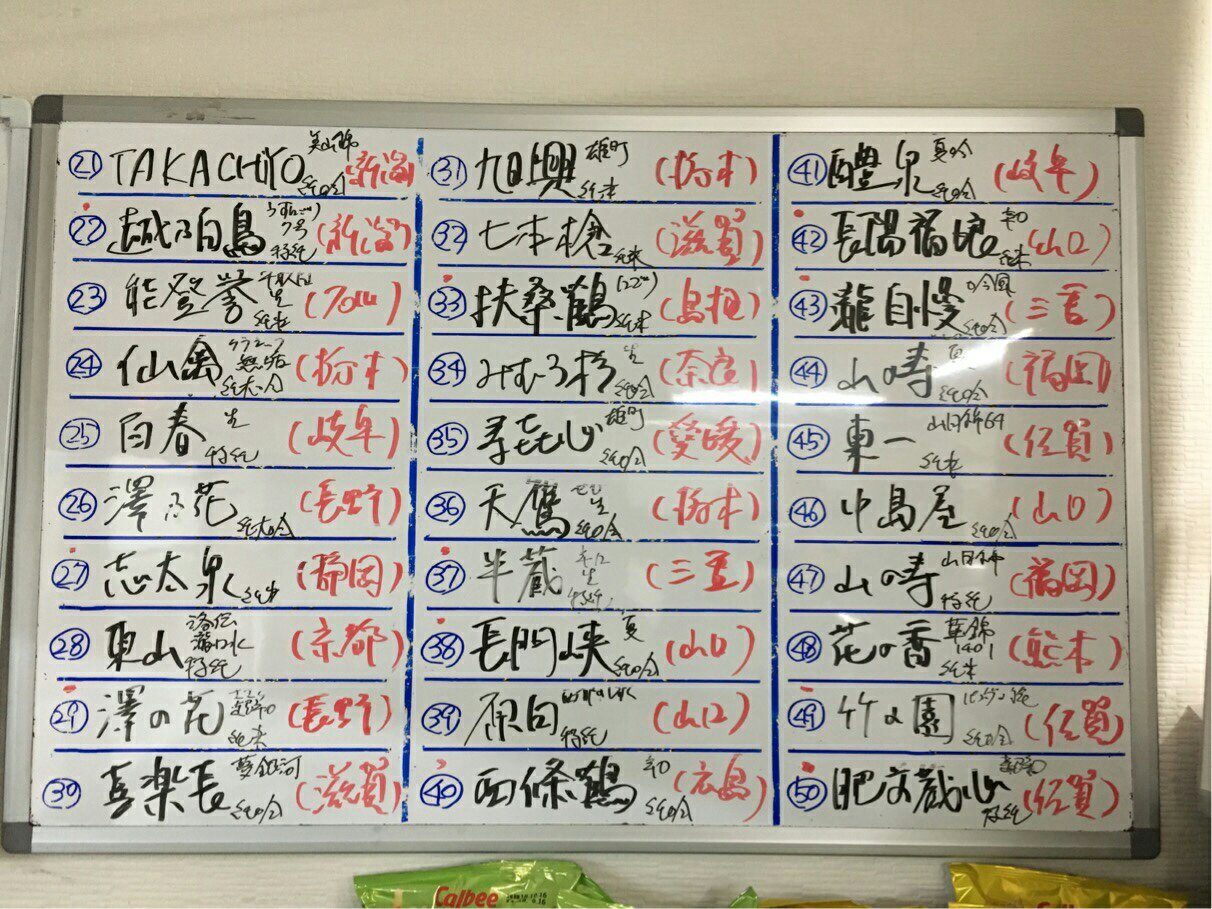 ㉑ TAKACHIYO 美山錦 純吟 (新潟)
㉒ 越乃白鳥 7号 特純 (新潟)
㉓ 能登誉 生 純米 (石川)
㉔ 仙禽 無垢 純大吟 (栃木)
㉕ 百春 生 特純 (岐阜)
㉖ 澤の花 純大吟 (長野)
㉗ 志太泉 純米 (静岡)
㉘ 東山 特純 (京都)
㉙ 澤の花 辛口 純米 (長野)
㉚ 喜楽長 夢銀河 純吟 (滋賀)
㉛ 旭興 雄町 純米 (栃木)
㉜ 七本槍 純米 (滋賀)
㉝ 扶桑鶴 純米 (島根)
㉞ みむろ杉 生 純吟 (奈良)
㉟ 寿喜心 雄町 純吟 (愛媛)
㊱ 天鷹 生 純吟 (栃木)
㊲ 半蔵 生 特純 (三重)
㊳ 長門峡 夏 純吟 (山口)
㊴ 原田 特純 (山口)
㊵ 西條鶴 辛口 純吟 (広島)
㊶ 醴泉 夏吟 純吟 (岐阜)
㊷ 長陽福娘 辛口 純米 (山口)
㊸ 瀧自慢 純吟 (三重)
㊹ 山の寿 純吟 (福岡)
㊺ 東一 山田錦64 純米 (佐賀)
㊻ 中島屋 純吟 (山口)
㊼ 山の寿 山田錦 特純 (福岡)
㊽ 花の香 華錦 1401 純米 (熊本)
㊾ 竹の園 純吟 (佐賀)
㊿ 肥前蔵心 特純 (佐賀)
Calbee